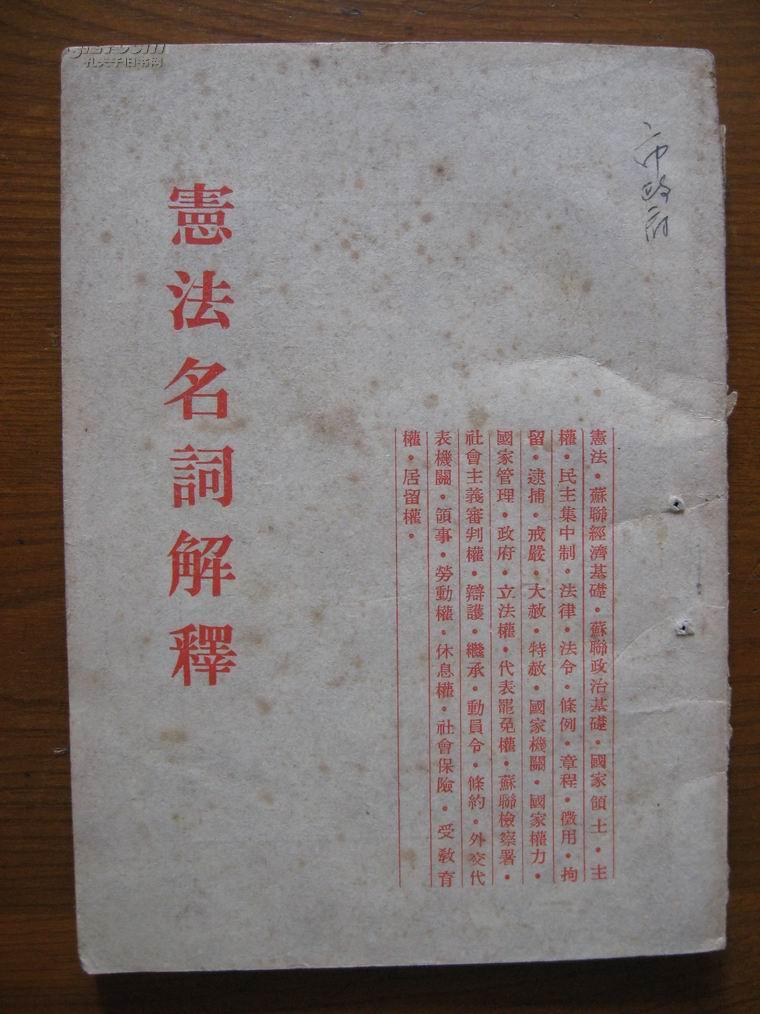 孔夫子旧书网
市政府
憲法·蘇聯經濟基礎·蘇聯政治基礎·國家領土·主
權·民主集中制·法律·法令·條例·章程·徵用·拘
留·逮捕·戒嚴·大赦·特赦·國家機關·國家權力·
國家管理·政府·立法權·代表罷免權·蘇聯檢察署·
社會主義審判權·辯護·繼承·動員令·條約·外交代
表機關·領事·勞動權·休息權·社會保險·受敎育
權·居留權·
憲法名詞解釋